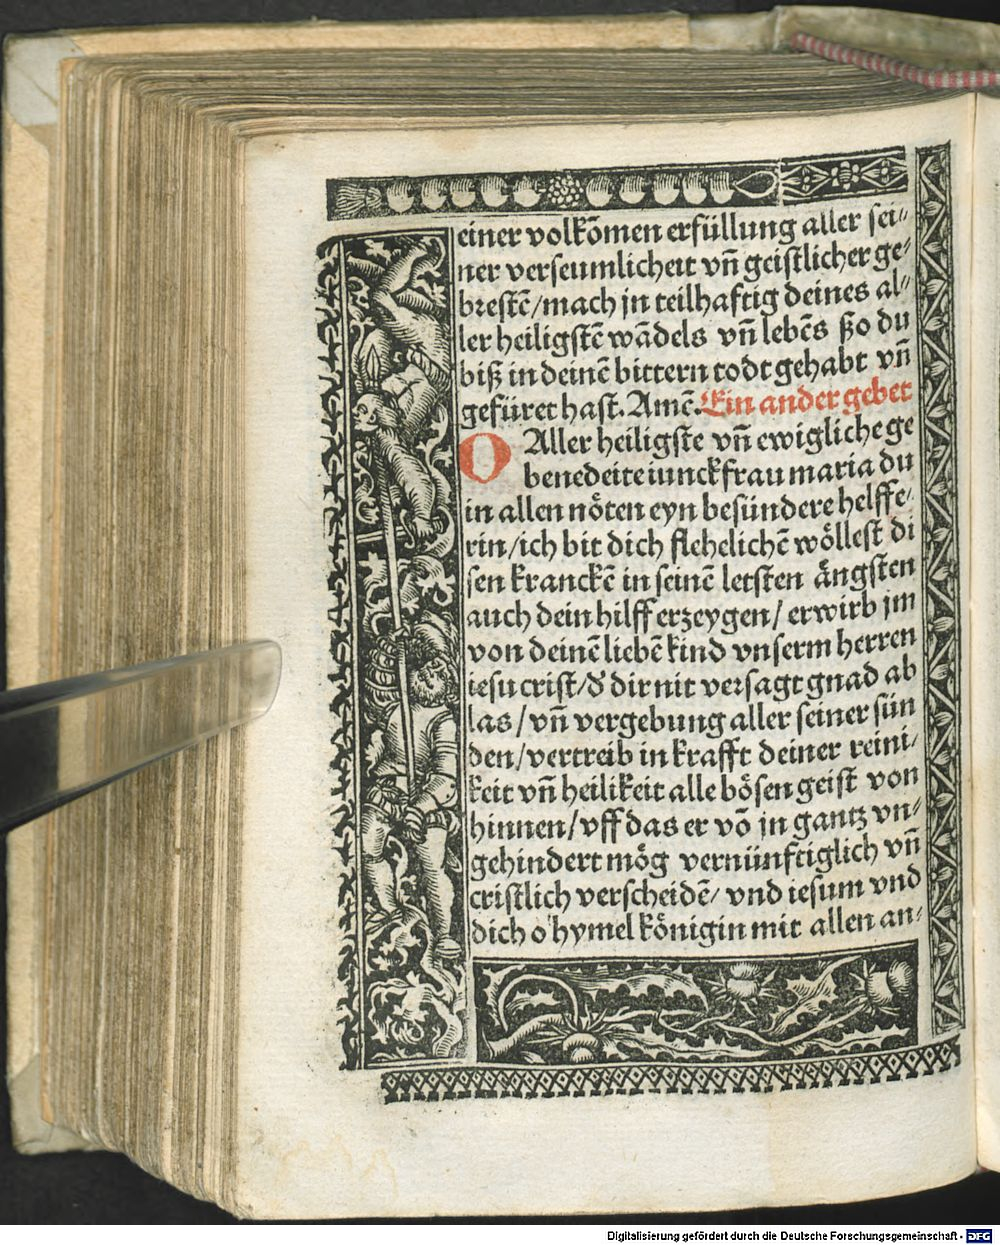 einer volkōmen erfüllung aller sei⸗
ner verseumlicheit vñ geistlicher ge⸗
brestē/mach jn teilhaftig deines al⸗
ler heiligstē wādels vñ lebēs ßo du
biß in deinē bittern todt gehabt vñ
gefüret hast. Amē. Ein ander gebet
O Aller heiligste vñ ewigliche ge
benedeite iunckfrau maria du
in allen nöten eyn besündere helffe⸗
rin/ich bit dich flehelichē wöllest di
sen kranckē in seinē letsten ängsten
auch dein hilff erzeygen/ erwirb jm
von deinē liebē kind vnserm herren
iesu crist/ď dir nit versagt gnad ab
las/vñ vergebung aller seiner sün
den/vertreib in krafft deiner reini⸗
keit vñ heilikeit alle bösen geist von
hinnen/vff das er vō jn gantz vn⸗
gehindert mög vernünftiglich vñ
cristlich verscheidē/ vnd iesum vnd
dich o hymel königin mit allen an⸗
Digitalisierung gefördert durch die Deutsche Forschungsgemeinschaft - DFG